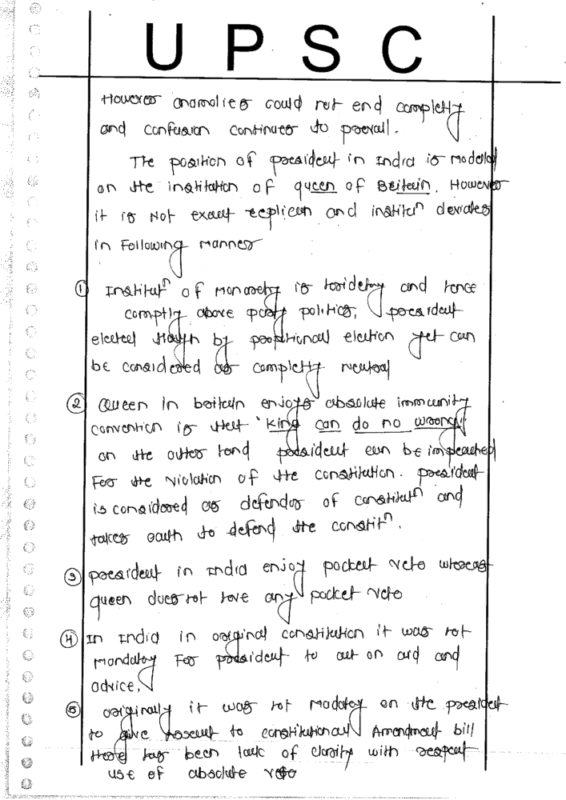 UPSC
However anomalies could not end completly
and confusion continues to prevail.
The position of president in India is modeled
on the institution of queen of Britain. However
it is Not exact replica and institun deviates
in Following manner
① Institutn of Monarchy is and hence
comptly above party politics, president
elected by election yet can
be considered as completly neutral
② Queen in britain enjoys absolute immunity
convention is that 'king can do no wrong'
on the other hand president can be impeached
For the violation of the constitution. president
is considered as defender of constitutn and
takes oath to defend the constitn.
③ president in India enjoy pocket veto whereas
queen does not have any pocket veto
④ In India in original constitution it was not
mandatory For president to act on aid and
advice,
⑤ originally it was not madatoy on the president
to give Assent to constitutional Amendment bill
there has been lack of clarity with respect
use of absolute veto